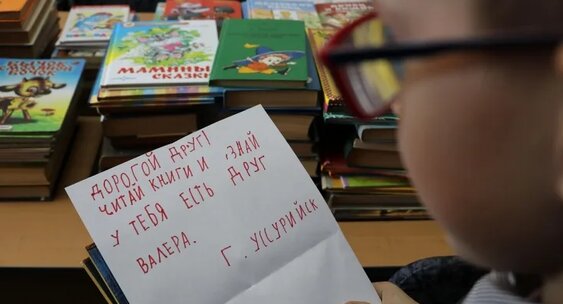 МАМИНЫ
СКАЗКИ
ДОРОГОЙ ДРУГ!
ЧИТАЙ КНИГИ И ,ЗНАЙ
У ТЕБЯ ЕСТЬ ДРУГ
ВАЛЕРА.
Г. УССУРИЙСК